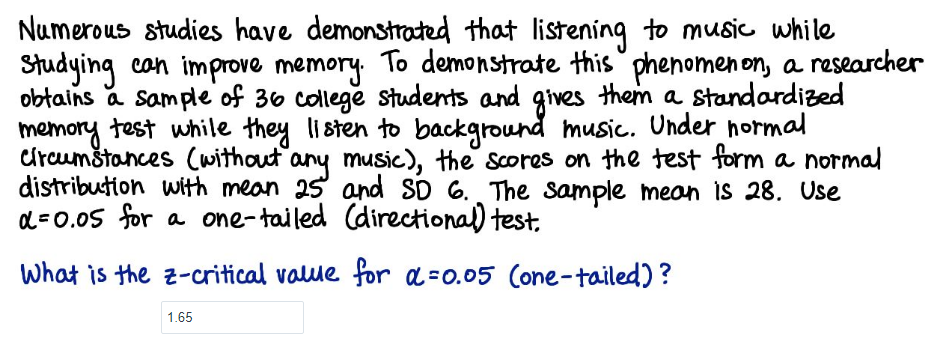 Numerous studies have demonstrated that listening to music while
studying can improve memory. To demonstrate this phenomenon, a researcher
obtains a sample of 36 college students and gives them a standardized
memory test while they listen to background music. Under normal
circumstances (without any music), the scores on the test form a normal
distribution with mean 25 and SD 6. The sample mean is 28. Use
α=0.05 for a one-tailed (directional) test.
What is the z-critical value for α=0.05 (one-tailed)?
1.65